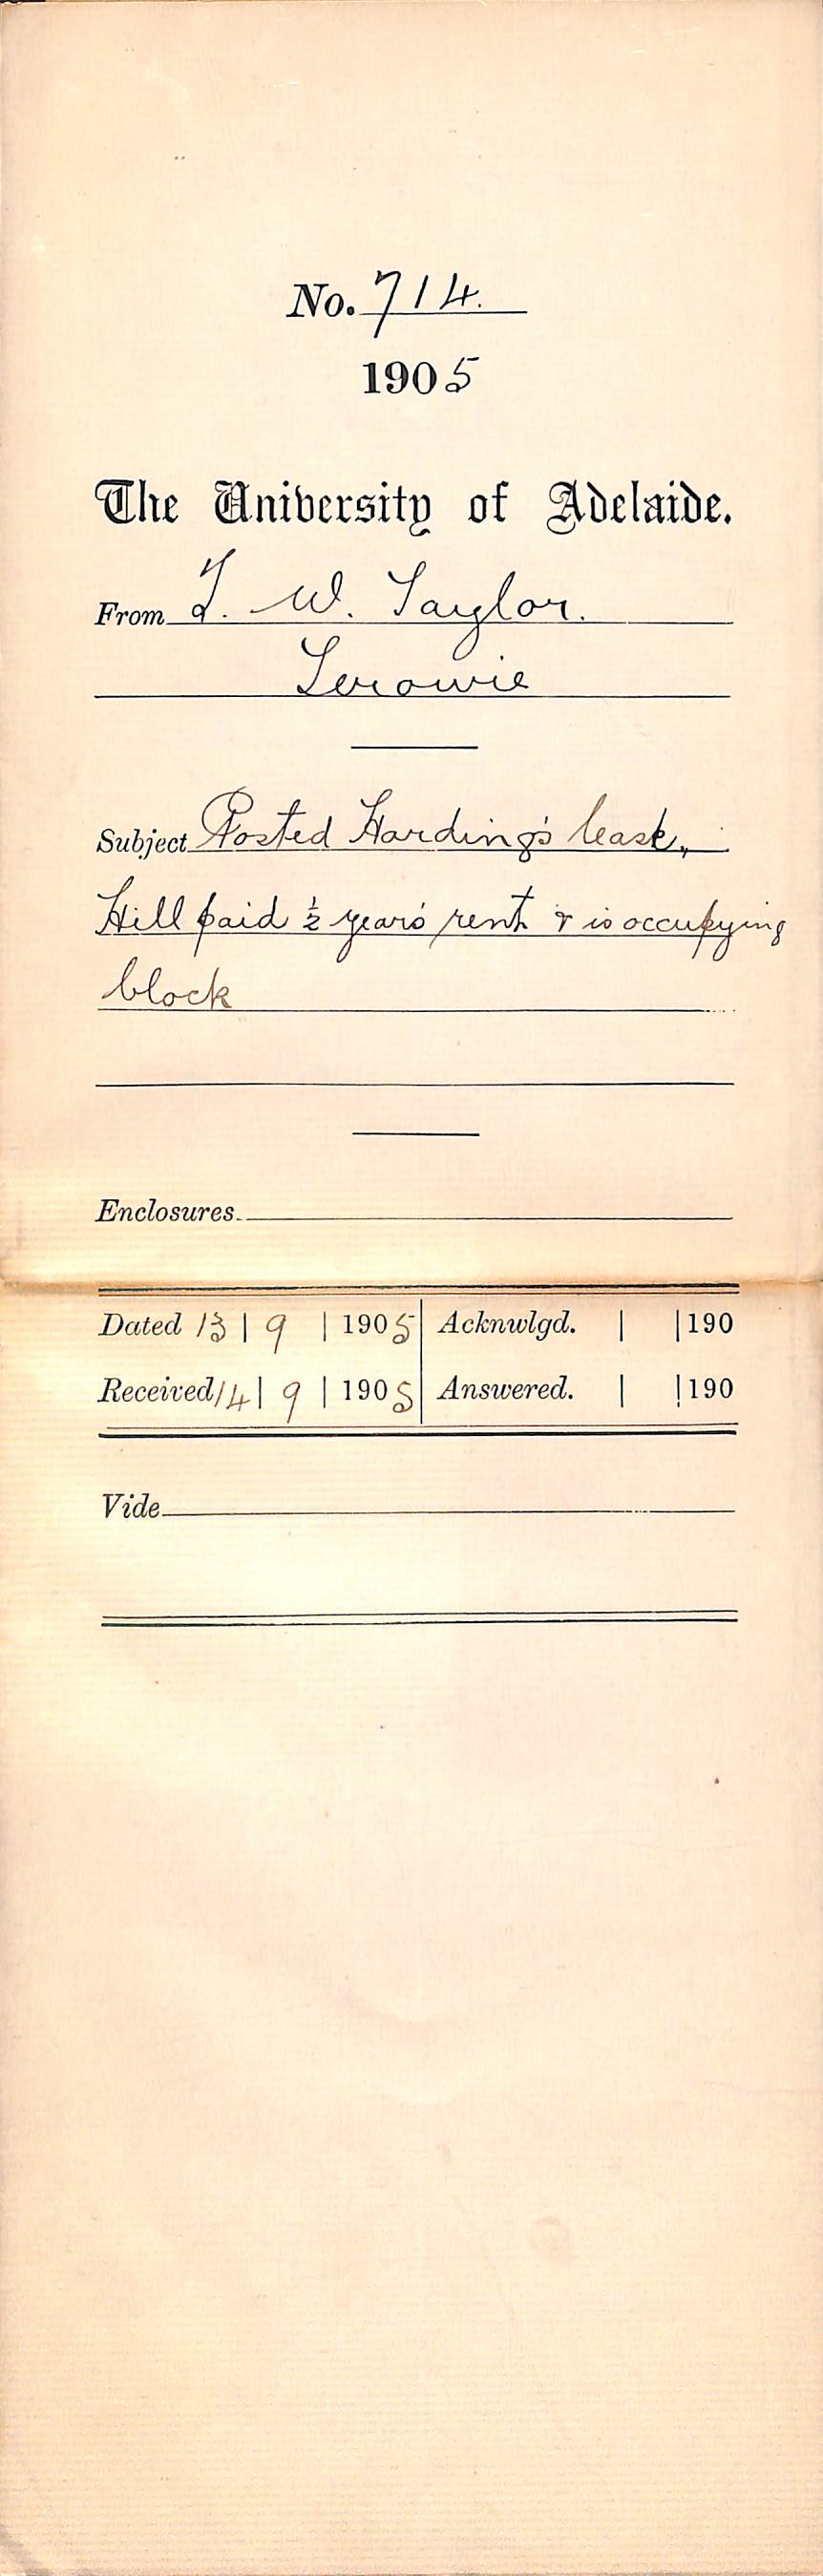 No. 714.
1905
The University of Adelaide.
From T. W. Taylor.
Terowie
Subject Posted Harding's lease,
Hill paid ½ year's rent & is occupying
block
Enclosures
Dated 13 | 9 | 1905 Acknwlgd. | | 190
Received 14 | 9 | 1905 Answered. | | 190
Vide